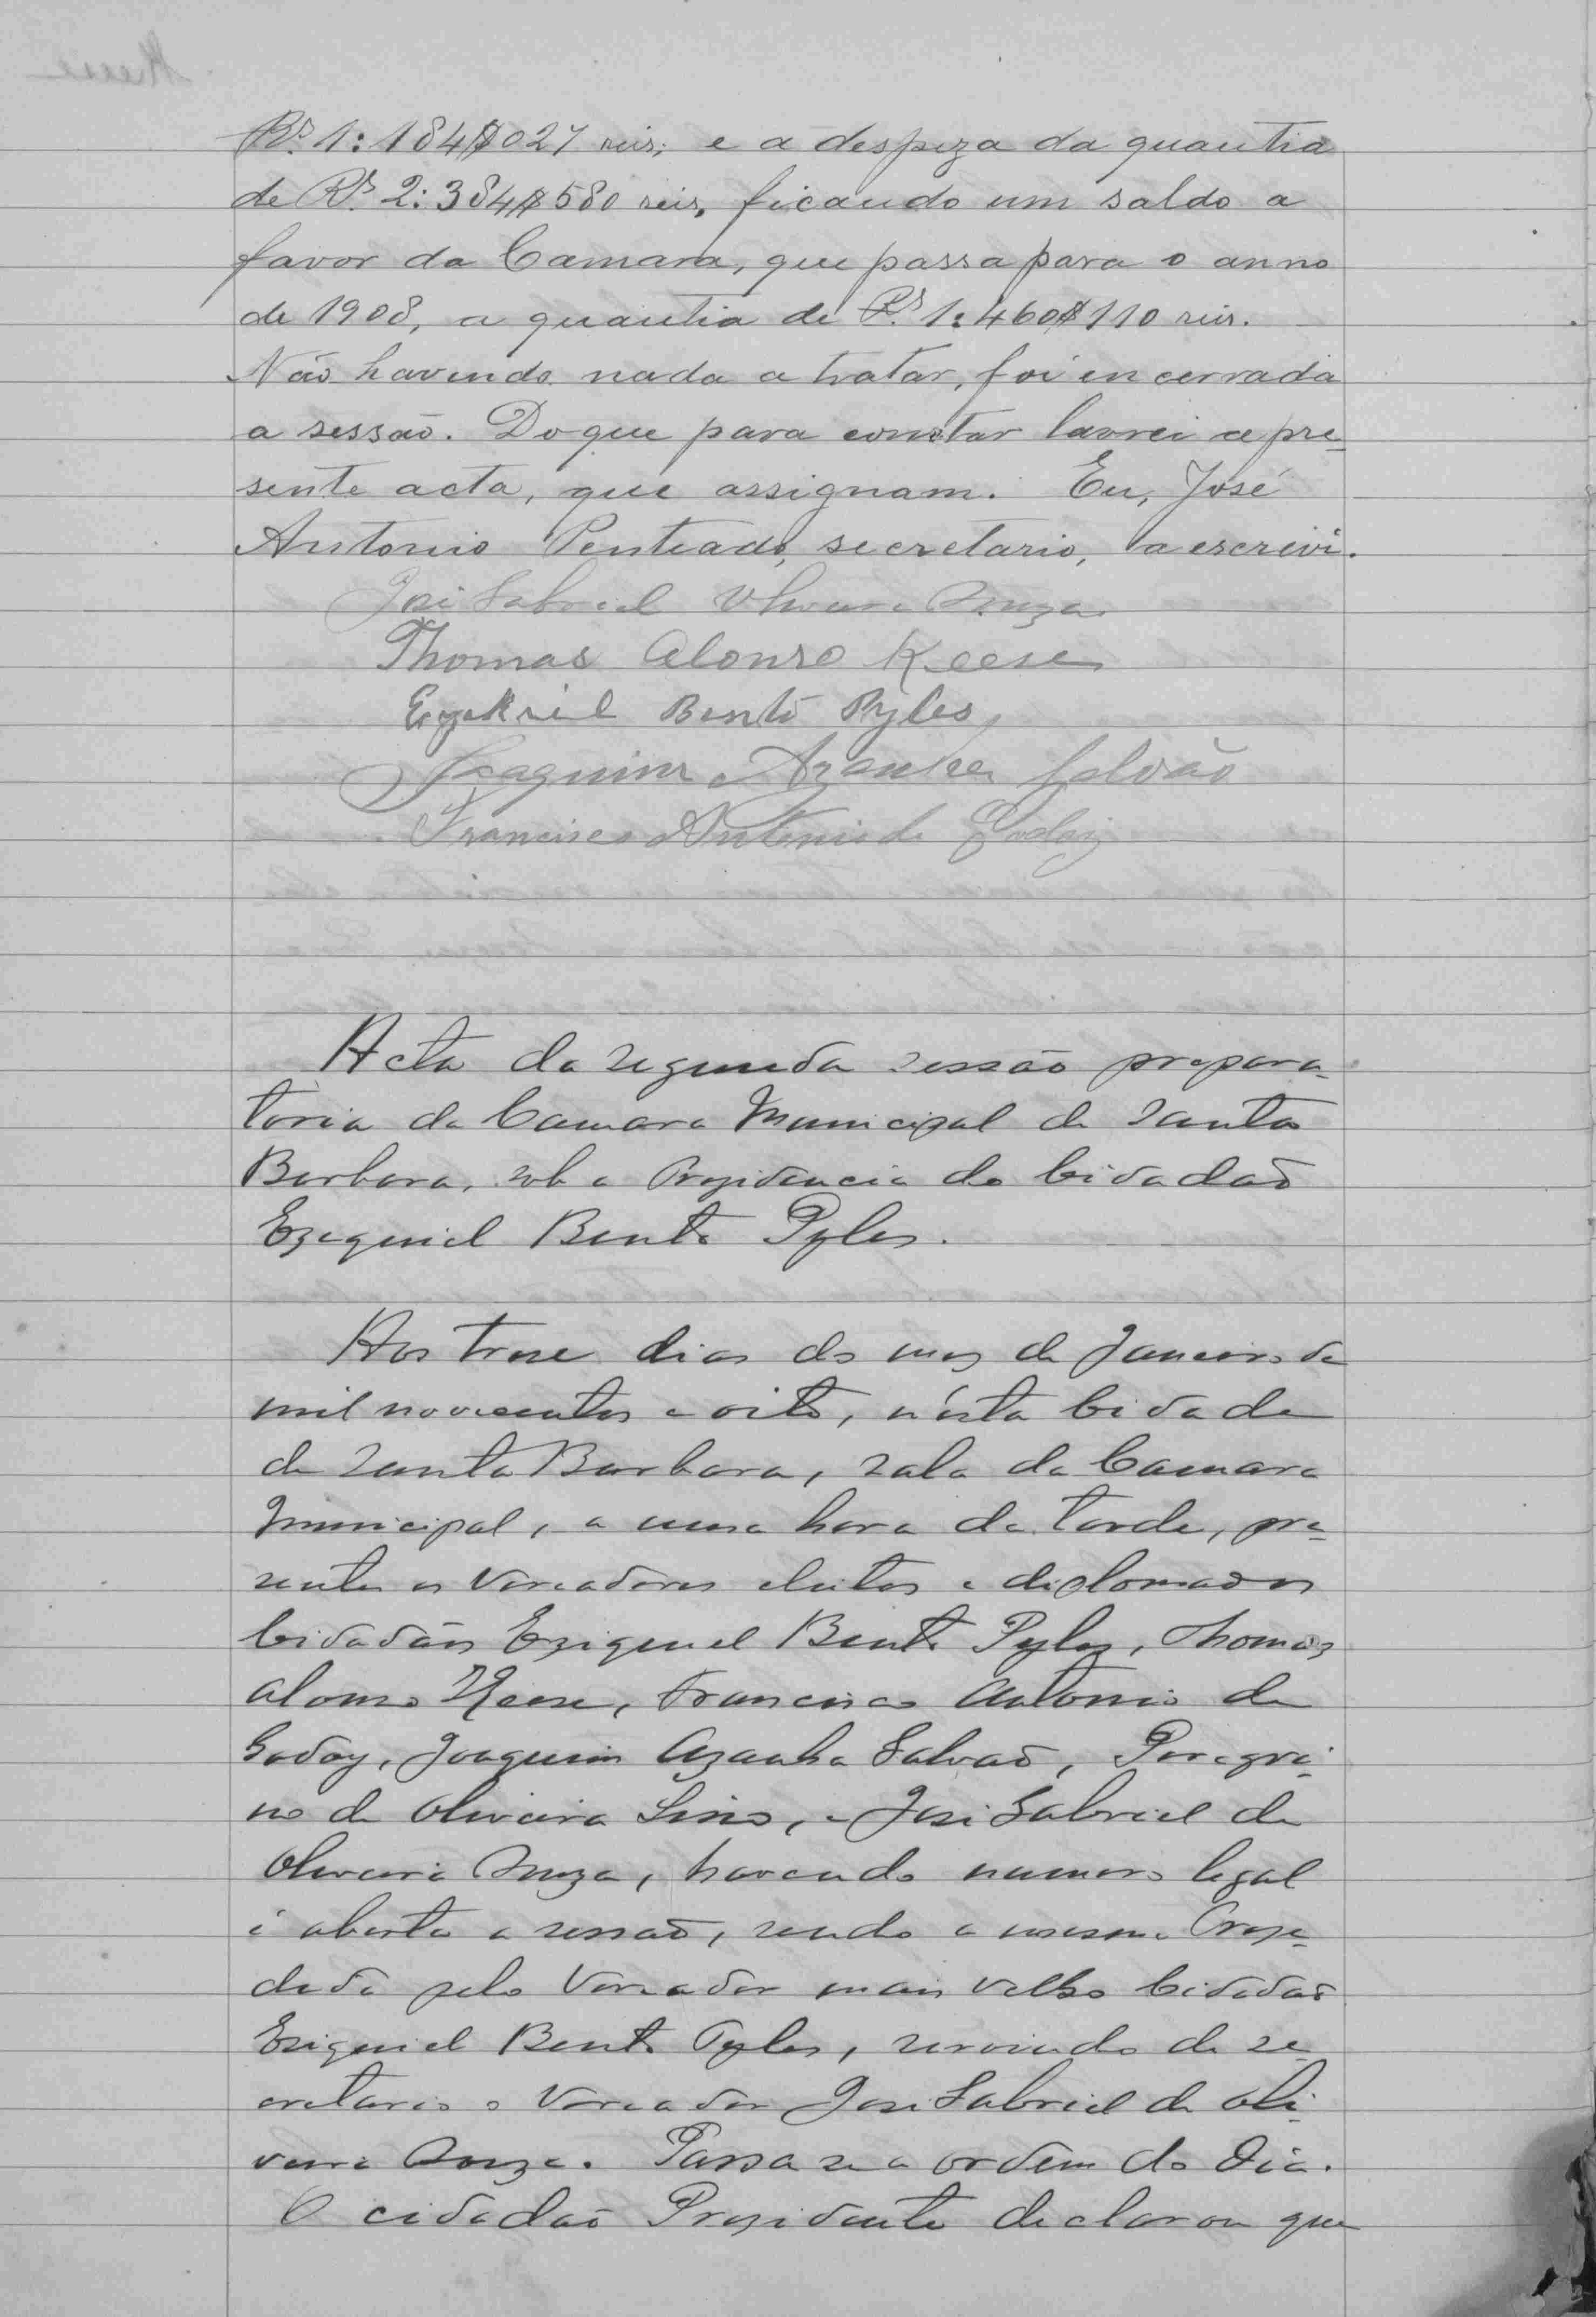 Rs. 1:184$027 reis; e a despeza da quantia
de Rs. 2:384$580 reis, ficando um saldo a
favor da Camara, que passa para o anno
de 1908, a quantia de Rs. 1:460$110 reis.
Não havendo nada a tratar, foi encerrada
a sessão. Do que para constar lavrei a pre-
sente acta, que assignam. Eu, José
Antonio Penteado, secretario, a escrevi.
José Gabriel Oliveira Souza
Thomas Alonso Keese
Ezekiel Bento Pyles
Joaquim Azanha Galvão
Francisco Antonio de Godoy
Acta da segunda sessão prepara-
toria da Camara Municipal de Santa
Barbara, sob a Prezidencia do Cidadaõ
Ezequiel Bento Pyles.
Aos treze dias do mez de Janeiro de
mil novecentos e oito, n'ésta Cidade
de Santa Barbara, sala da Camara
Municipal, a uma hora da tarde, pre-
sentes os Vereadores eleitos e diplomados
Cidadãos Eziquiel Bento Pyles, Thomaz
Alonso Keese, Francisco Antonio de
Godoy, Joaquim Azanha Galvaõ, Peregri-
no de Oliveira Lino, e José Gabriel de
Oliveira Souza, havendo numero legal
é aberta a sessaõ, sendo a mesma Preze-
dida pelo Vereador mais velho Cidadaõ
Eziquiel Bento Pyles, servindo de se-
cretario o Vereador José Gabriel de Oli-
veira Souza. Passa se a ordem do Dia.
O cidadaõ Prezidente declarou que